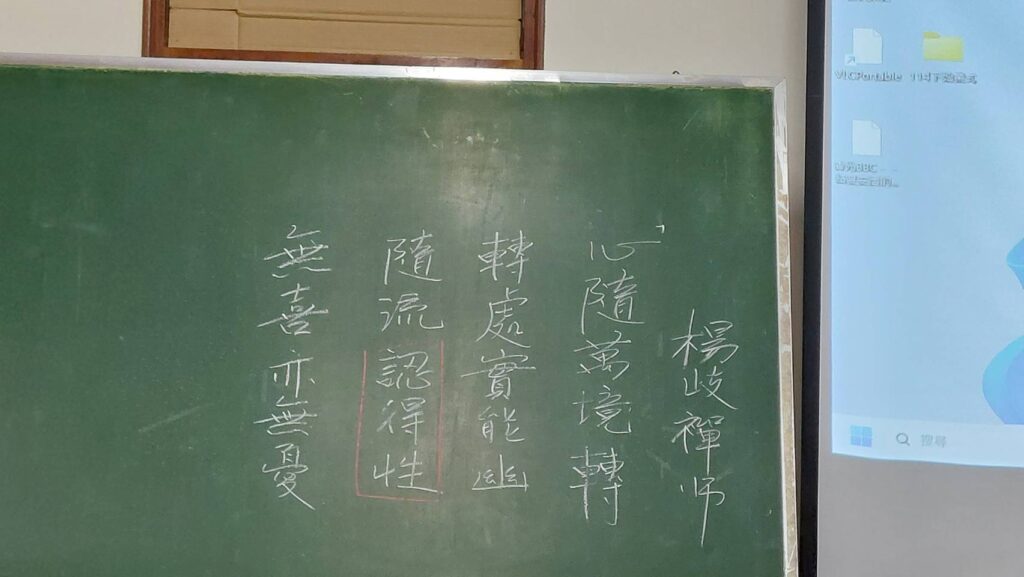 楊岐禪师
心隨萬境轉
轉處實能幽
隨流認得性
無喜亦無憂
VLCPortable
搜尋